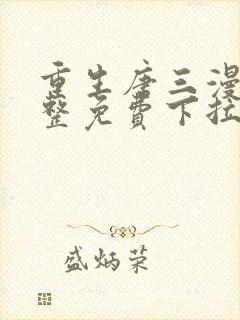 重生唐三漫
整免费下拉
盛炳荣